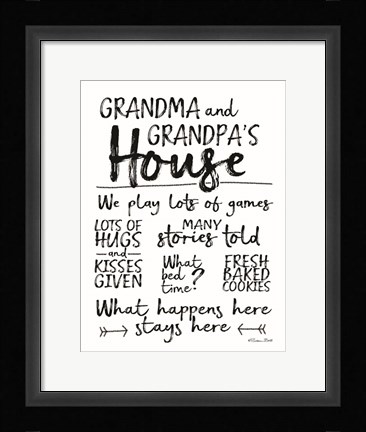 GRANDMA and
GRANDPA'S
House
We play lots of games
LOTS OF
HUGS
and
KISSES
GIVEN
MANY
stories told
What
bed
time?
FRESH
BAKED
COOKIES
What happens here
stays here